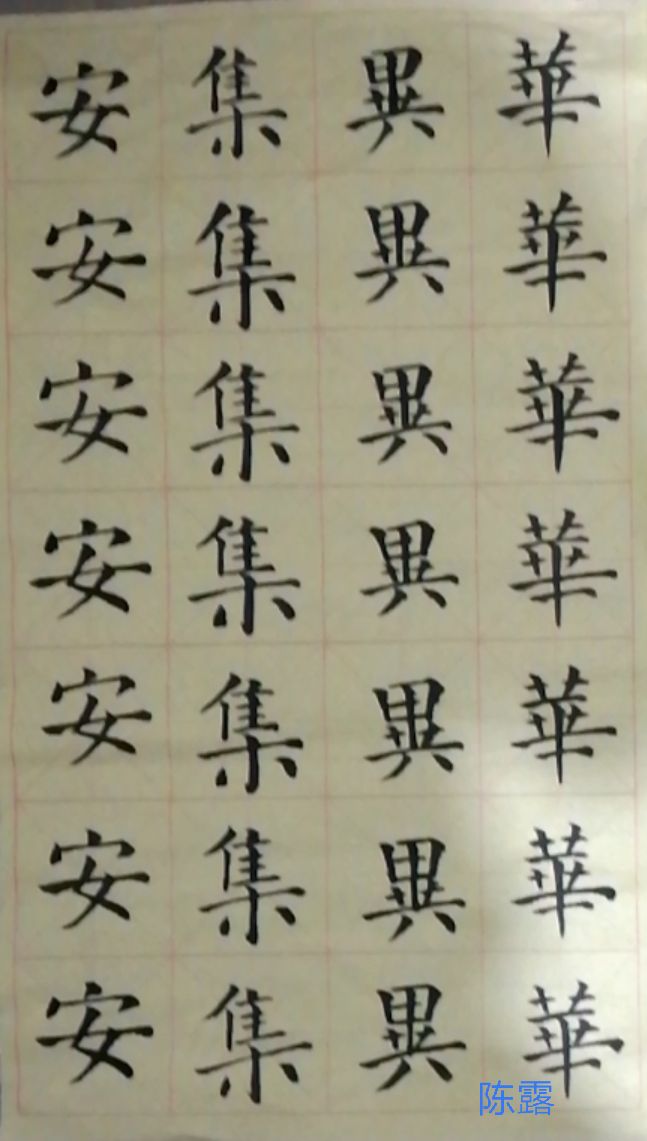 華華華華華華華
異異異異異異異
集集集集集集集
安安安安安安安
陈露